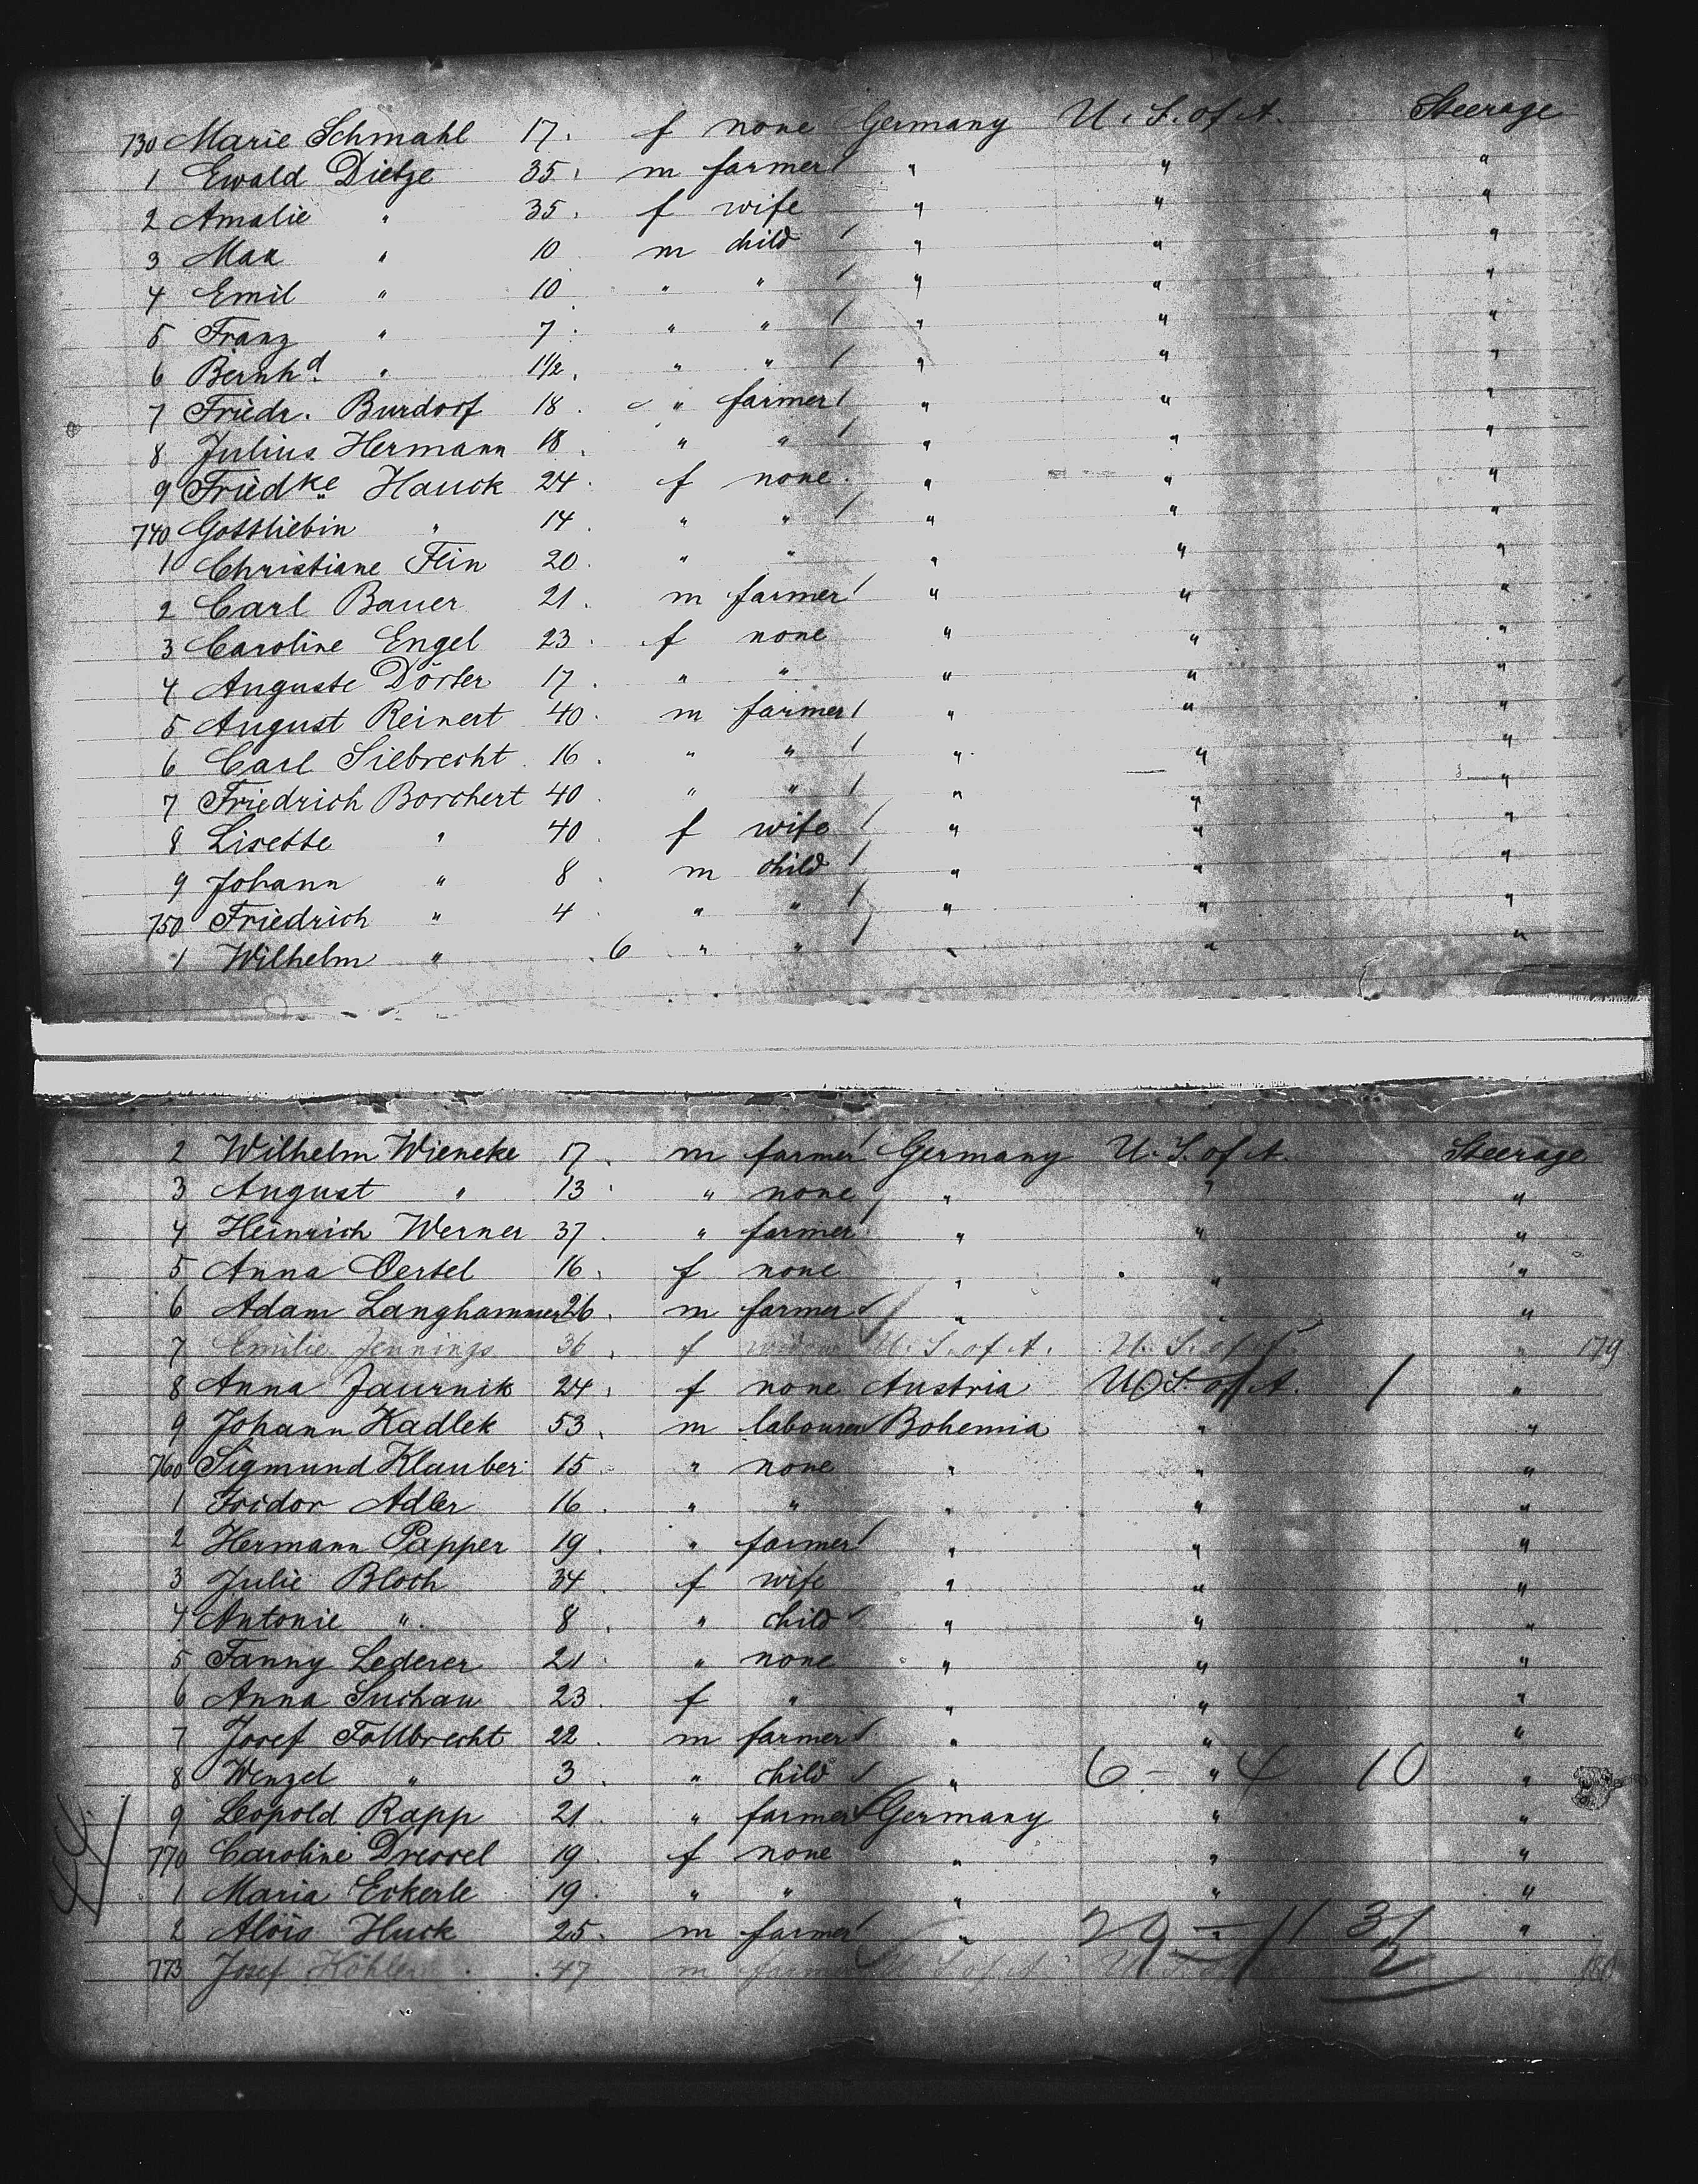 730 Marie Schmahl 17. f none Germany U. S. of A. Steerage
1 Ewald Dietze 35. m farmer " " "
2 Amalie " 35. f wife " " "
3 Max " 10 m child " " "
4 Emil " 10 " " " " "
5 Franz " 7. " " " " "
6 Bernhd. " 1 1/2. " " " " "
7 Friedr. Burdorf 18. " farmer " " "
8 Julius Hermann 18. " " " " "
9 Friedke Hauck 24. f none. " " "
740 Gottliebin " 14. " " " " "
1 Christiane Flin 20. " " " " "
2 Carl Bauer 21. m farmer " " "
3 Caroline Engel 23. f none " " "
4 Auguste Dörter 17. " " " " "
5 August Reinert 40. m farmer " " "
6 Carl Siebrecht. 16. " " " " "
7 Friedrich Borchert 40. " " " " "
8 Lisette " 40. f wife " " "
9 Johann " 8. m child " " "
750 Friedrich " 4. " " " " "
1 Wilhelm " . 6 " " " " "
2 Wilhelm Wieneke 17. m farmer Germany U. S. of A. Steerage
3 August " 13. " none " " "
4 Heinrich Werner 37. " farmer " " "
5 Anna Oertel 16. f none " " "
6 Adam Langhammer 26. m farmer " " "
7 Emilie Jennings 36. f widow U. S. of A. U. S. of A. " 179
8 Anna Jaurnik 24. f none Austria U. S. of A. 1 "
9 Johann Kadlek 53. m labourer Bohemia " "
760 Sigmund Klauber 15. " none " " "
1 Isidor Adler 16. " " " " "
2 Hermann Papper 19. " farmer " " "
3 Julie Bloch 34. f wife " " "
4 Antonie " 8. " child " " "
5 Fanny Lederer 21. " none " " "
6 Anna Suchan 23. f " " " "
7 Josef Follbrecht 22. m farmer " " "
8 Wenzel " 3. " child " 6 - " 4 10 "
9 Leopold Rapp 21. " farmer Germany " "
770 Caroline Dressel 19. f none " " "
1 Maria Eckerle 19. " " " " "
2 Alois Huck 25. m farmer " 29 - " 11 "
773 Josef Köhler 47 m farmer U. S. of A. U. S. of 180